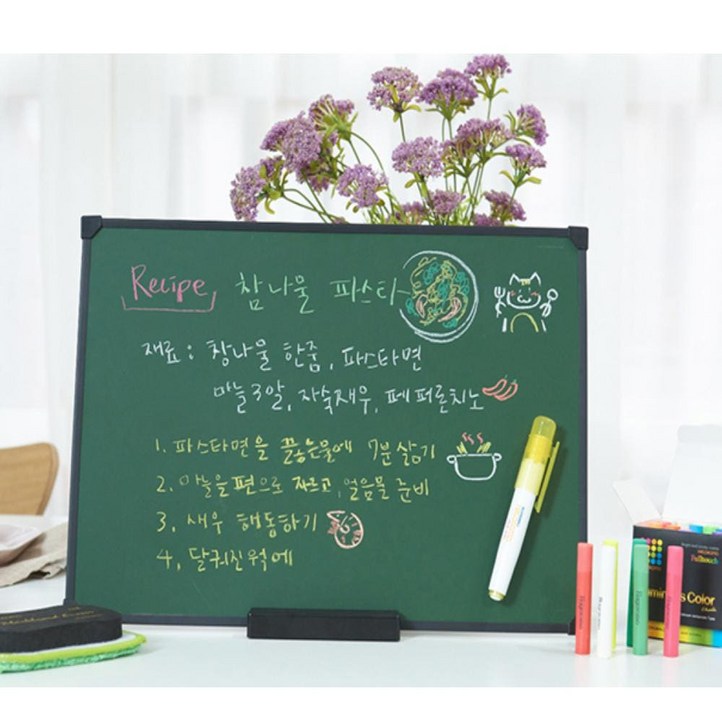 Recipe 참나물 파스타
재료 : 참나물 한줌, 파스타면
마늘3알, 자숙새우, 페퍼론치노
1. 파스타면을 끓는물에 7분 삶기
2. 마늘을 편으로 자르고, 얼음물 준비
3. 새우 해동하기
4. 달궈진 웍에
Color